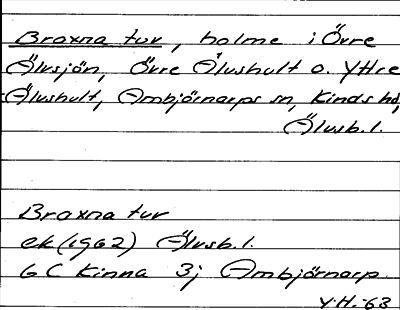 Broxna tur, holme i Övre
Älvsjön, Övre Älvshult o. Yttre
Älvshult, Ambjörnarps sn, Kinds hd,
Älvsb. l.
Broxna tur
ek (1962) Älvsb. l.
6 C Kinna 3j Ambjörnarp
Y.H.-63